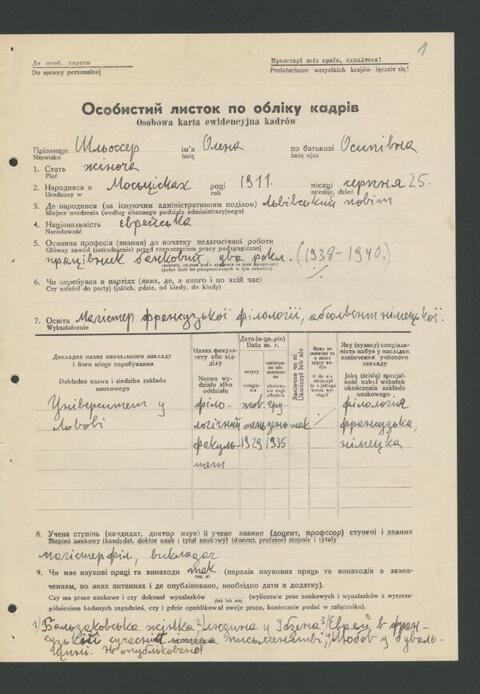 1
До особ. справи
Do sprawy personalnej
Пролетарі всіх країн, єднайтеся!
Proletariusze wszystkich krajów łączcie się!
Особистий листок по обліку кадрів
Osobowa karta ewidencyjna kadrów
Прізвище Шльоссер ім'я Олена по батькові Осипівна
Nazwisko imię imię ojca
1. Стать жіноча
Płeć
2. Народився в Мосьцісках році 1911 місяці серпня 25.
Urodzony w roku miesiąc, dzień
3. Де народився (за існуючим адміністративним поділом) Львівський повіт
Miejsce urodzenia (według obecnego podziału administracyjnego)
4. Національність Єврейська
Narodowość
5. Основна професія (звання) до початку педагогічної роботи
Główny zawód (zatrudnienie) przed rozpoczęciem pracy pedagogicznej
працівник банковий два роки. (1938-1940.)
6. Чи перебував в партіях (яких, де, з якого і по який час)
Czy należał do partyj (jakich, gdzie, od kiedy, do kiedy)
7. Освіта Магістер французької філології, абсольвент німецької.
Wykształcenie
Докладна назва навчального закладу
і його місце перебування
Dokładna nazwa i siedziba zakładu
naukowego
Назва факультету або відділу
Nazwa wydziału albo oddziału
Дата (м-ць, рік)
Data m. r.
Яку (вузьку) спеціальність набув у наслідок закінчення учбового закладу
Jaką (ścisłą) specjalność nabył wskutek ukończenia zakładu naukowego
Університет у Львові
філологічний факультет
жовтень 1929
грудень 1935
так
філологія французька німецька
8. Учена ступінь (кандидат, доктор наук) й учене звання (доцент, професор) ступені і звання
Stopień naukowy (kandydat, doktor nauk) i tytuł naukowy (docent, profesor) stopnie i tytuły
магістер філ., викладач
9. Чи має наукові праці та винаходи так (перелік наукових праць та винаходів з зазначенням,
по яких питаннях і де опубліковано, необхідно дати в додатку).
Czy ma prace naukowe i czy dokonał wynalazków (wyliczenie prac naukowych i wynalazków z wyszczególnieniem
badanych zagadnień, czy i gdzie opublikował swoje prace, koniecznie podać w załączniku).
1) Бальзаковська жінка 2) людина у Ібзена 3) Єврей в французькій
сучасній письменстві,
Не опубліковано!